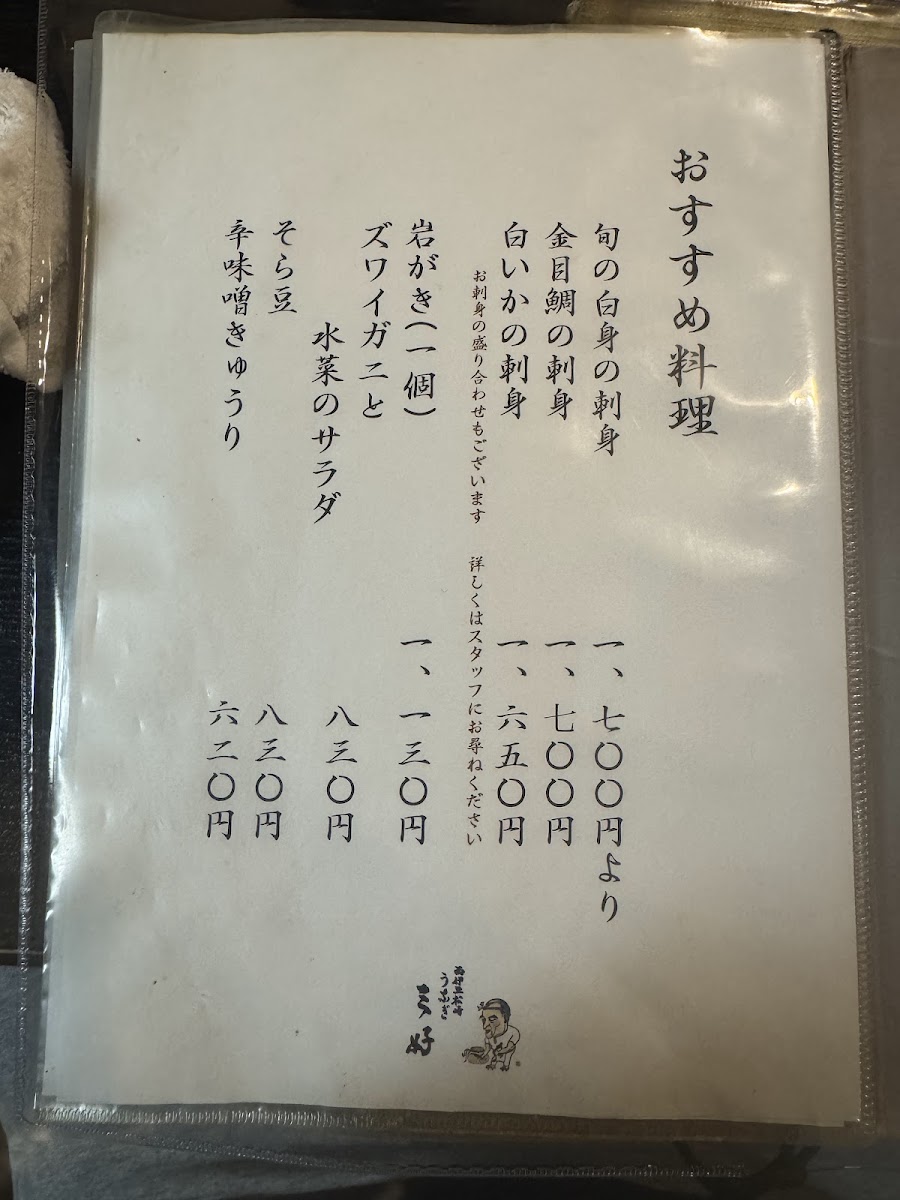 おすすめ料理
旬の白身の刺身 一、七〇〇円より
金目鯛の刺身 一、七〇〇円
白いかの刺身 一、六五〇円
お刺身の盛り合わせもございます 詳しくはスタッフにお尋ねください
岩がき(一個) 一、一三〇円
ズワイガニと
水菜のサラダ 八三〇円
そら豆 八三〇円
辛味噌きゅうり 六二〇円
西伊豆松崎
うなぎ
三好